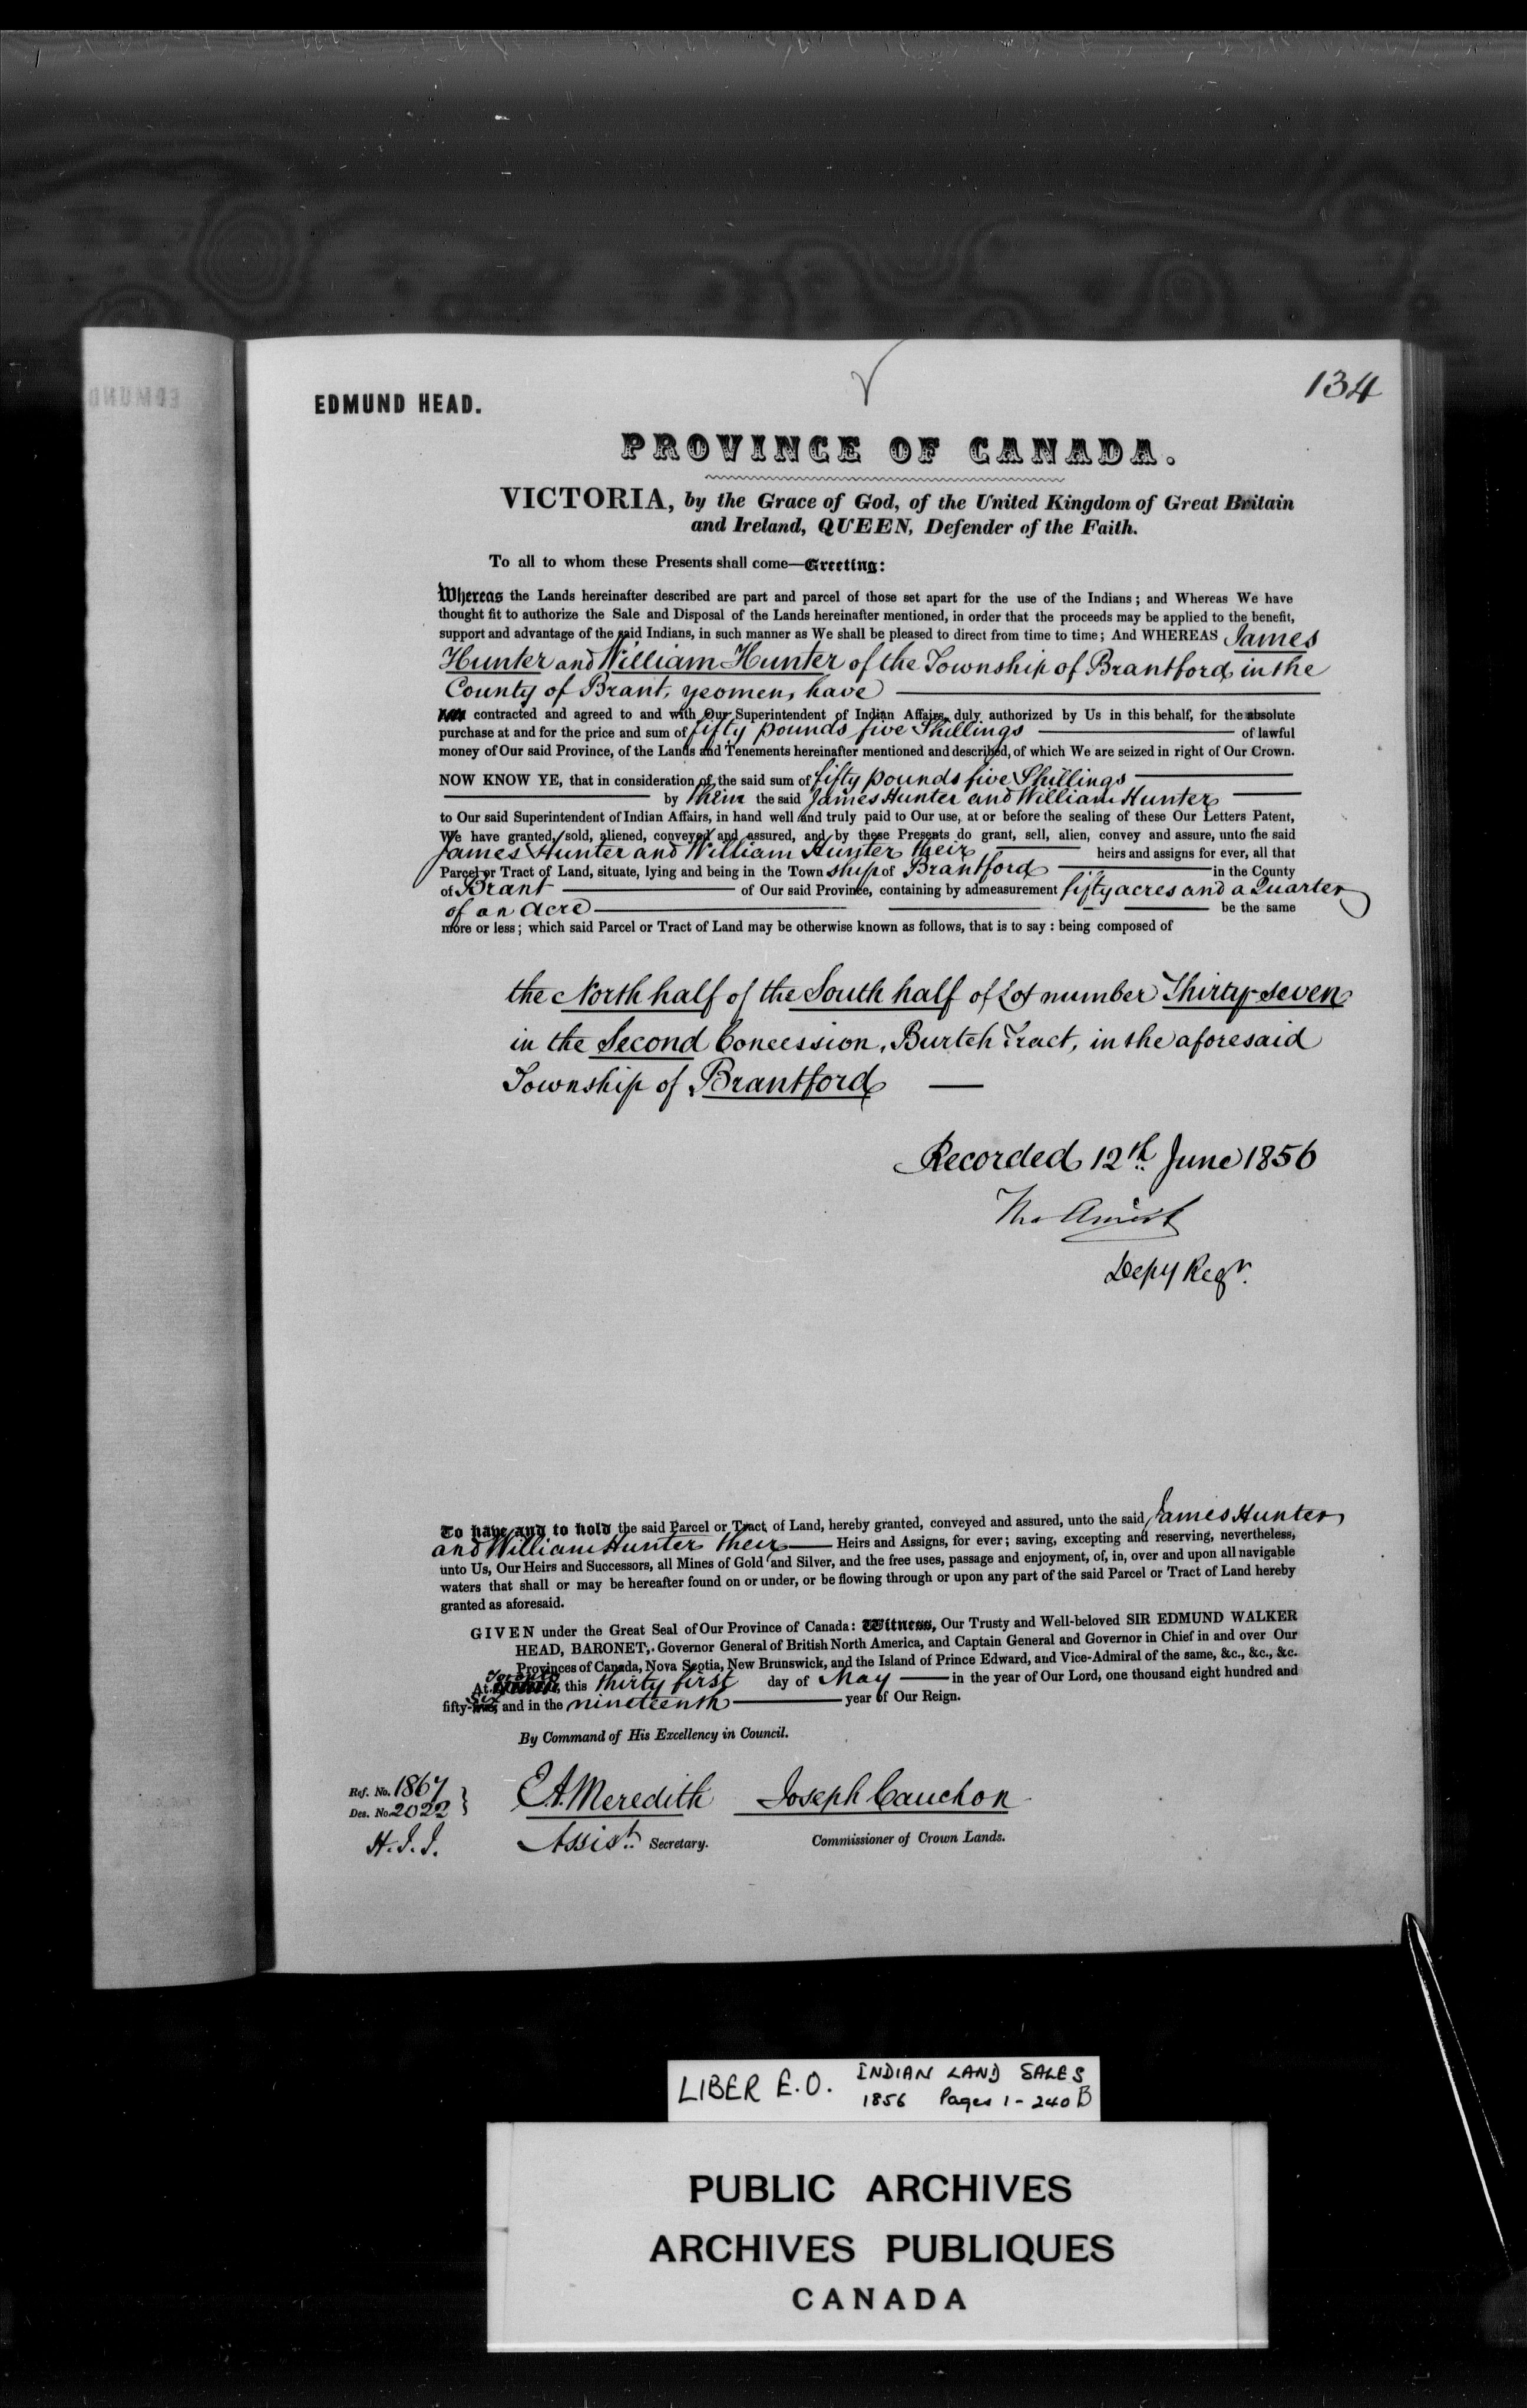 134
EDMUND HEAD.
PROVINCE OF CANADA.
VICTORIA, by the Grace of God, of the United Kingdom of Great Britain
and Ireland, QUEEN, Defender of the Faith.
To all to whom these Presents shall come—Greeting:
Whereas the Lands hereinafter described are part and parcel of those set apart for the use of the Indians; and Whereas We have
thought fit to authorize the Sale and Disposal of the Lands hereinafter mentioned, in order that the proceeds may be applied to the benefit,
support and advantage of the said Indians, in such manner as We shall be pleased to direct from time to time; And WHEREAS James
Hunter and William Hunter of the Township of Brantford in the
County of Brant, yeomen, have
contracted and agreed to and with Our Superintendent of Indian Affairs, duly authorized by Us in this behalf, for the absolute
purchase at and for the price and sum of fifty pounds five Shillings of lawful
money of Our said Province, of the Lands and Tenements hereinafter mentioned and described, of which We are seized in right of Our Crown.
NOW KNOW YE, that in consideration of the said sum of fifty pounds five Shillings
by them the said James Hunter and William Hunter
to Our said Superintendent of Indian Affairs, in hand well and truly paid to Our use, at or before the sealing of these Our Letters Patent,
We have granted, sold, aliened, conveyed and assured, and by these Presents do grant, sell, alien, convey and assure, unto the said
James Hunter and William Hunter their heirs and assigns for ever, all that
Parcel or Tract of Land, situate, lying and being in the Town ship of Brantford in the County
of Brant of Our said Province, containing by admeasurement fifty acres and a Quarter
of an Acre be the same
more or less; which said Parcel or Tract of Land may be otherwise known as follows, that is to say: being composed of
the North half of the South half of Lot number Thirty-seven
in the Second Concession, Burtch Tract, in the aforesaid
Township of Brantford
Recorded 12th June 1856
Depy Regr.
To have and to hold the said Parcel or Tract of Land, hereby granted, conveyed and assured, unto the said James Hunter
and William Hunter their Heirs and Assigns, for ever; saving, excepting and reserving, nevertheless,
unto Us, Our Heirs and Successors, all Mines of Gold and Silver, and the free uses, passage and enjoyment, of, in, over and upon all navigable
waters that shall or may be hereafter found on or under, or be flowing through or upon any part of the said Parcel or Tract of Land hereby
granted as aforesaid.
GIVEN under the Great Seal of Our Province of Canada: Witness, Our Trusty and Well-beloved SIR EDMUND WALKER
HEAD, BARONET, Governor General of British North America, and Captain General and Governor in Chief in and over Our
Provinces of Canada, Nova Scotia, New Brunswick, and the Island of Prince Edward, and Vice-Admiral of the same, &c., &c., &c.
At Toronto, this thirty first day of May in the year of Our Lord, one thousand eight hundred and
fifty-six and in the nineteenth year of Our Reign.
By Command of His Excellency in Council.
Ref. No. 1867
Des. No. 2022
H.J.J.
E.A. Meredith
Assist. Secretary.
Joseph Cauchon
Commissioner of Crown Lands.
LIBER E.O. INDIAN LAND SALES
1856 Pages 1-240B
PUBLIC ARCHIVES
ARCHIVES PUBLIQUES
CANADA